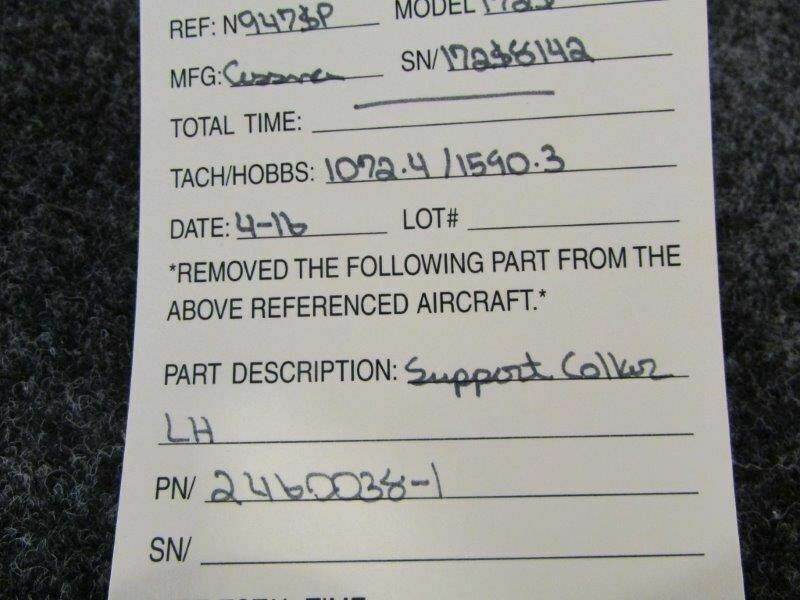 REF: N947SP MODEL 172S
MFG: Cessna SN/ 172S8142
TOTAL TIME:
TACH/HOBBS: 1072.4 / 1590.3
DATE: 4-16 LOT#
*REMOVED THE FOLLOWING PART FROM THE
ABOVE REFERENCED AIRCRAFT.*
PART DESCRIPTION: Support
LH
PN/ 2460038-1
SN/